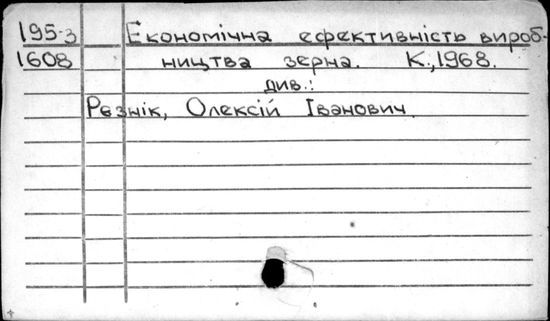 195-з Економічна ефективність вироб-
1608 ництва зерна. К.,1968.
див.:
Рєзнік, Олексій Іванович.